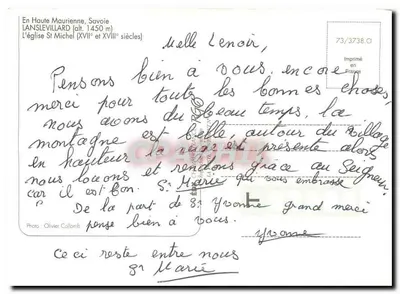 En Haute Maurienne, Savoie
LANSLEVILLARD (alt. 1450 m)
L'église St Michel (XVIIe et XVIIIe siècles)
73/3738 O
Imprimé en France
Melle Lenoir,
Pensons bien à vous, encore
merci pour toute les bonnes choses,
nous avons du beau temps, la
montagne est belle, autour du village
en hauteur la est présente alors
nous louons et rendons grâce au Seigneur
car il est bon. Sr Marie qui vous embrasse
De la part de Sr Yvonne grand merci
pense bien à vous.
Yvonne
Ceci reste entre nous
Sr Marie
Photo : Olivier Collomb